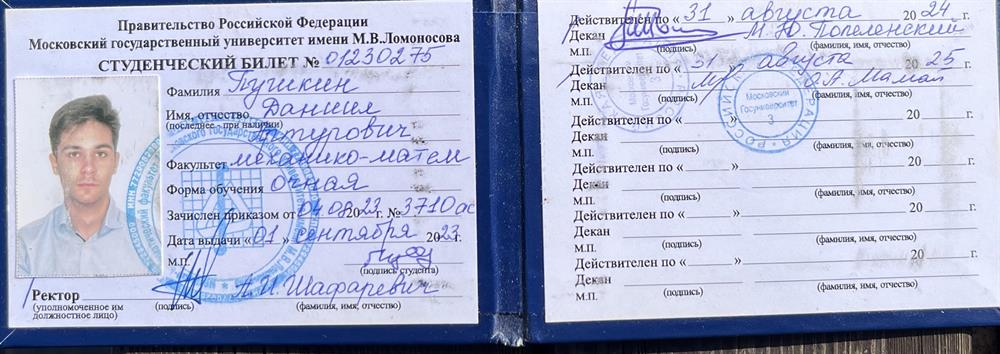 Правительство Российской Федерации
Московский государственный университет имени М.В.Ломоносова
СТУДЕНЧЕСКИЙ БИЛЕТ № 01230275
Фамилия Пушкин
Имя, отчество Даниил
(последнее - при наличии) Артурович
Факультет механико-матем
Форма обучения очная
Зачислен приказом от 04.08.2023г. № 3710ас
Дата выдачи «01» сентября 2023г.
М.П.
(подпись студента)
Ректор А.И. Шафаревич
(уполномоченное им должностное лицо) (подпись) (фамилия, имя, отчество)
Действителен по «31» августа 2024г.
Декан М.Ю. Попеленский
М.П. (подпись) (фамилия, имя, отчество)
Действителен по «31» августа 2025г.
Декан
М.П. (подпись) (фамилия, имя, отчество)
Московский Госуниверситет 3
Действителен по « » 20 г.
Декан
М.П. (подпись) (фамилия, имя, отчество)
Действителен по « » 20 г.
Декан
М.П. (подпись) (фамилия, имя, отчество)
Действителен по « » 20 г.
Декан
М.П. (подпись) (фамилия, имя, отчество)
Действителен по « » 20 г.
Декан
М.П. (подпись) (фамилия, имя, отчество)